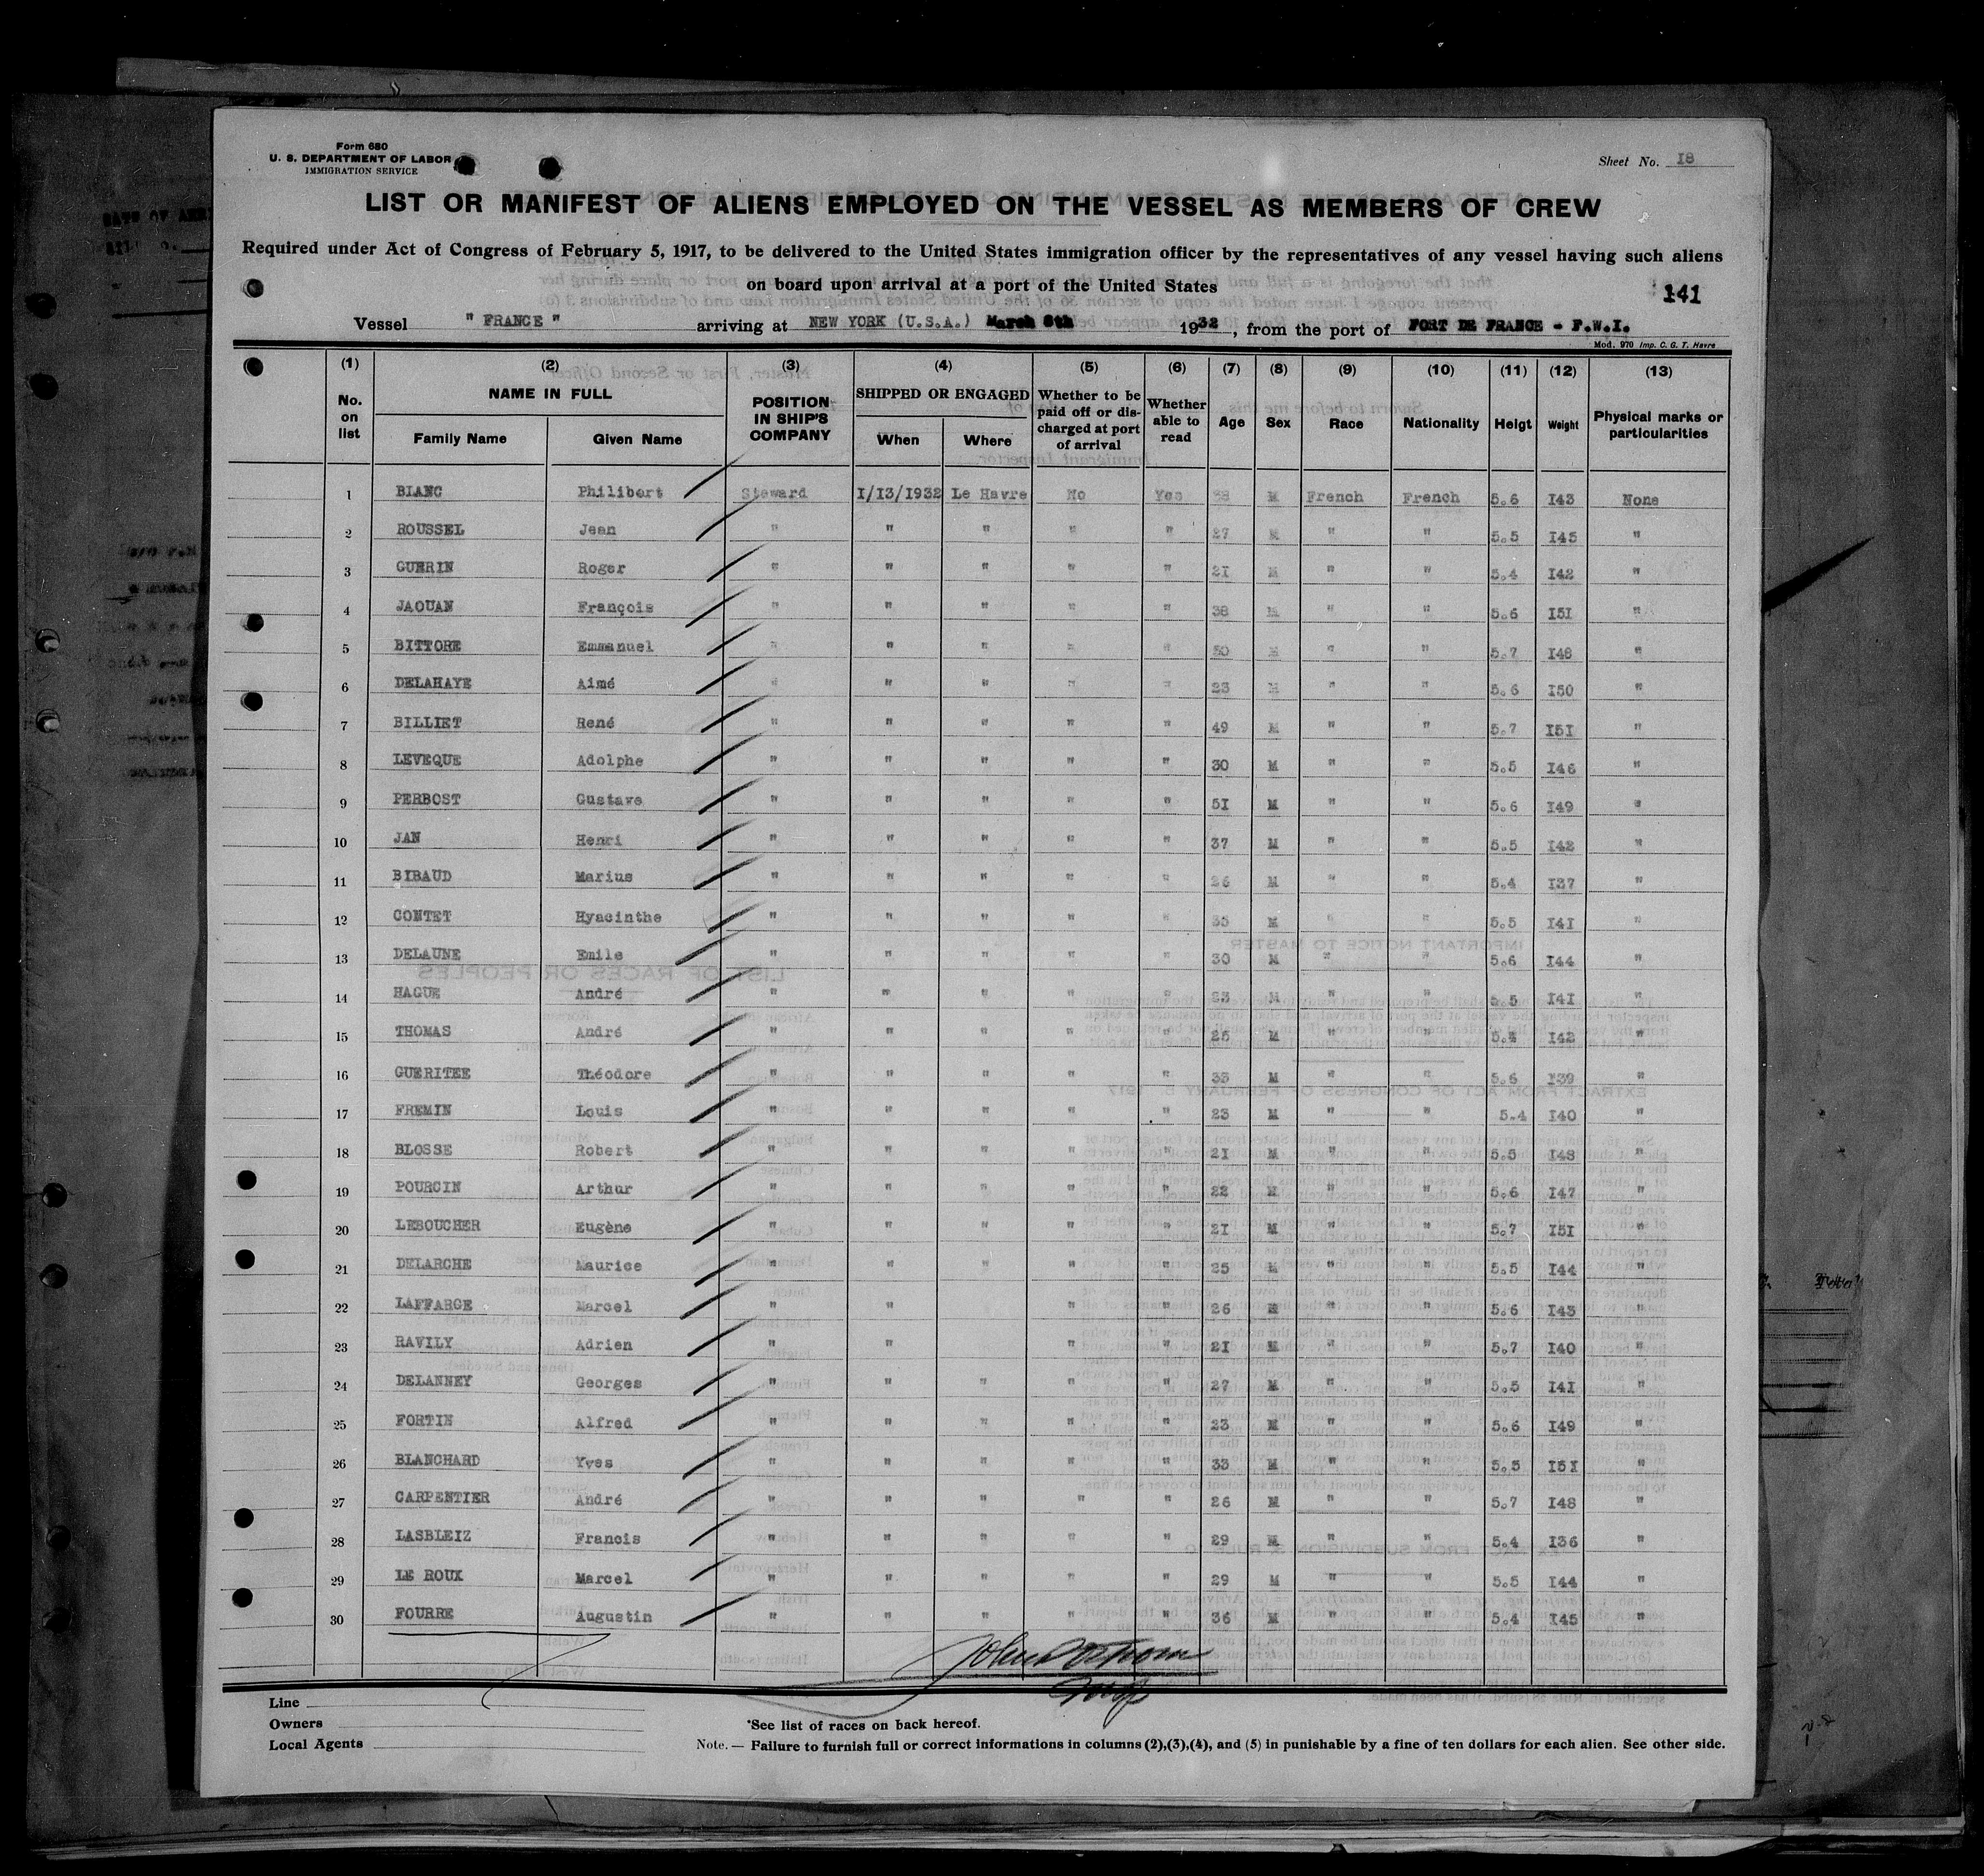 Form 680
U. S. DEPARTMENT OF LABOR
IMMIGRATION SERVICE
Sheet No. I8
LIST OR MANIFEST OF ALIENS EMPLOYED ON THE VESSEL AS MEMBERS OF CREW
Required under Act of Congress of February 5, 1917, to be delivered to the United States immigration officer by the representatives of any vessel having such aliens
on board upon arrival at a port of the United States
141
Vessel " FRANCE " arriving at NEW YORK (U.S.A.) March 8th 1932, from the port of FORT DE FRANCE - F.W.I.
Mod. 970 Imp. C. G. T. Havre
(1) (2) (3) (4) (5) (6) (7) (8) (9) (10) (11) (12) (13)
No. on list NAME IN FULL Family Name Given Name POSITION IN SHIP'S COMPANY SHIPPED OR ENGAGED When Where Whether to be paid off or discharged at port of arrival Whether able to read Age Sex Race Nationality Heigt Weight Physical marks or particularities
1 BIANC Philibert Steward I/I3/I932 Le Havre No Yes M French French 5.6 I43 None
2 ROUSSEL Jean " " " " " 27 M " " 5.5 I45 "
3 GUERIN Roger " " " " " 2I M " " 5.4 I42 "
4 JAOUAN François " " " " " 38 M " " 5.6 I5I "
5 BITTORE Emmanuel " " " " " M " " 5.7 I48 "
6 DELAHAYE Aimé " " " " " 23 M " " 5.6 I50 "
7 BILLIET René " " " " " 49 M " " 5.7 I5I "
8 LEVEQUE Adolphe " " " " " 30 M " " 5.5 I46 "
9 PERBOST Gustave " " " " " 5I M " " 5.6 I49 "
10 JAN Henri " " " " " 37 M " " 5.5 I42 "
11 BIBAUD Marius " " " " " 26 M " " 5.4 I37 "
12 CONTET Hyacinthe " " " " " 35 M " " 5.5 I4I "
13 DELAUNE Emile " " " " " 30 M " " 5.6 I44 "
14 HAGUE André " " " " " 23 M " " 5.5 I4I "
15 THOMAS André " " " " " 26 M " " 5.4 I42 "
16 GUERITEE Théodore " " " " " 33 M " " 5.6 I39 "
17 FREMIN Louis " " " " " 23 M " " 5.4 I40 "
18 BLOSSE Robert " " " " " 2I M " " 5.5 I48 "
19 POURCIN Arthur " " " " " 22 M " " 5.6 I47 "
20 LEBOUCHER Eugène " " " " " 2I M " " 5.7 I5I "
21 DELARCHE Maurice " " " " " 25 M " " 5.5 I44 "
22 LAFFARGE Marcel " " " " " 26 M " " 5.6 I43 "
23 RAVILY Adrien " " " " " 2I M " " 5.7 I40 "
24 DELANNEY Georges " " " " " 27 M " " 5.5 I4I "
25 FORTIN Alfred " " " " " 23 M " " 5.6 I49 "
26 BLANCHARD Yves " " " " " 33 M " " 5.5 I5I "
27 CARPENTIER André " " " " " 26 M " " 5.7 I48 "
28 LASBLEIZ Francis " " " " " 29 M " " 5.4 I36 "
29 LE ROUX Marcel " " " " " 29 M " " 5.5 I44 "
30 FOURRE Augustin " " " " " 36 M " " 5.4 I45 "
Line
Owners
Local Agents
*See list of races on back hereof.
Note. — Failure to furnish full or correct informations in columns (2),(3),(4), and (5) in punishable by a fine of ten dollars for each alien. See other side.